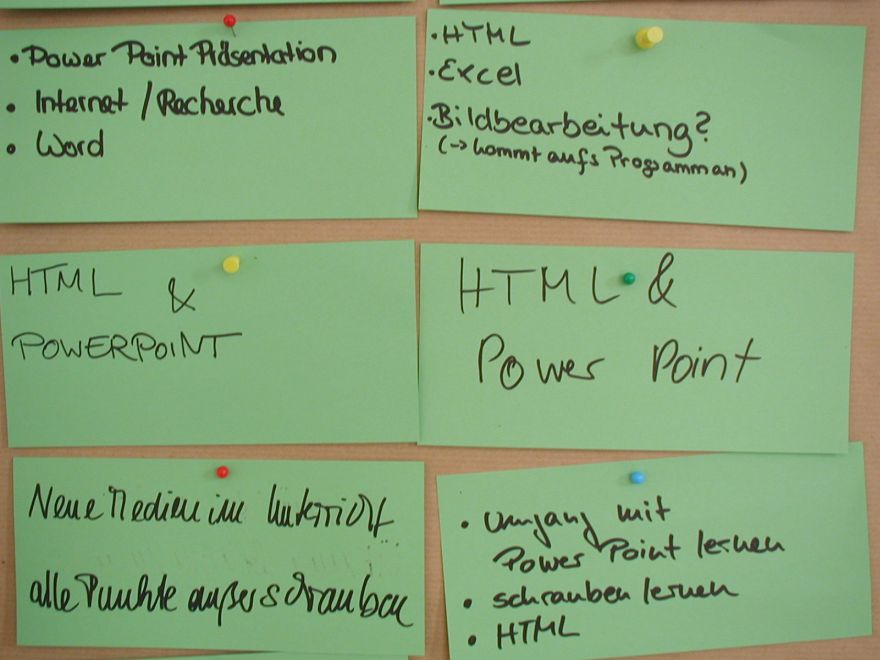 • Power Point Präsentation
• Internet / Recherche
• Word
• HTML
• Excel
• Bildbearbeitung?
(-> kommt aufs Programm an)
HTML &
POWERPOINT
HTML &
Power Point
Neue Medien im Unterricht
alle Punkte außer schrauben
• Umgang mit
Power Point lernen
• schrauben lernen
• HTML